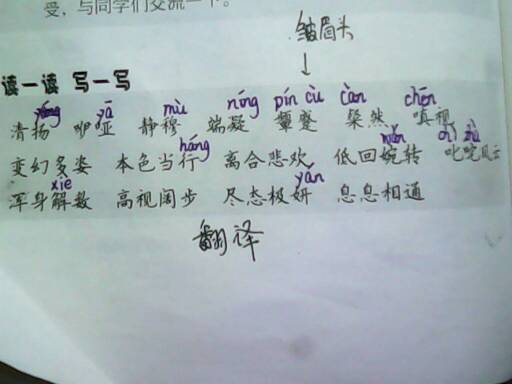 受,与同学们交流一下。
皱眉头
↓
读一读 写一写
yáng yā mù níng pín cù càn chēn
清扬 咿哑 静穆 端凝 颦蹙 粲然 嗔视
háng wǎn chì zhà
变幻多姿 本色当行 离合悲欢 低回婉转 叱咤风云
xiè yán
浑身解数 高视阔步 尽态极妍 息息相通
翻译